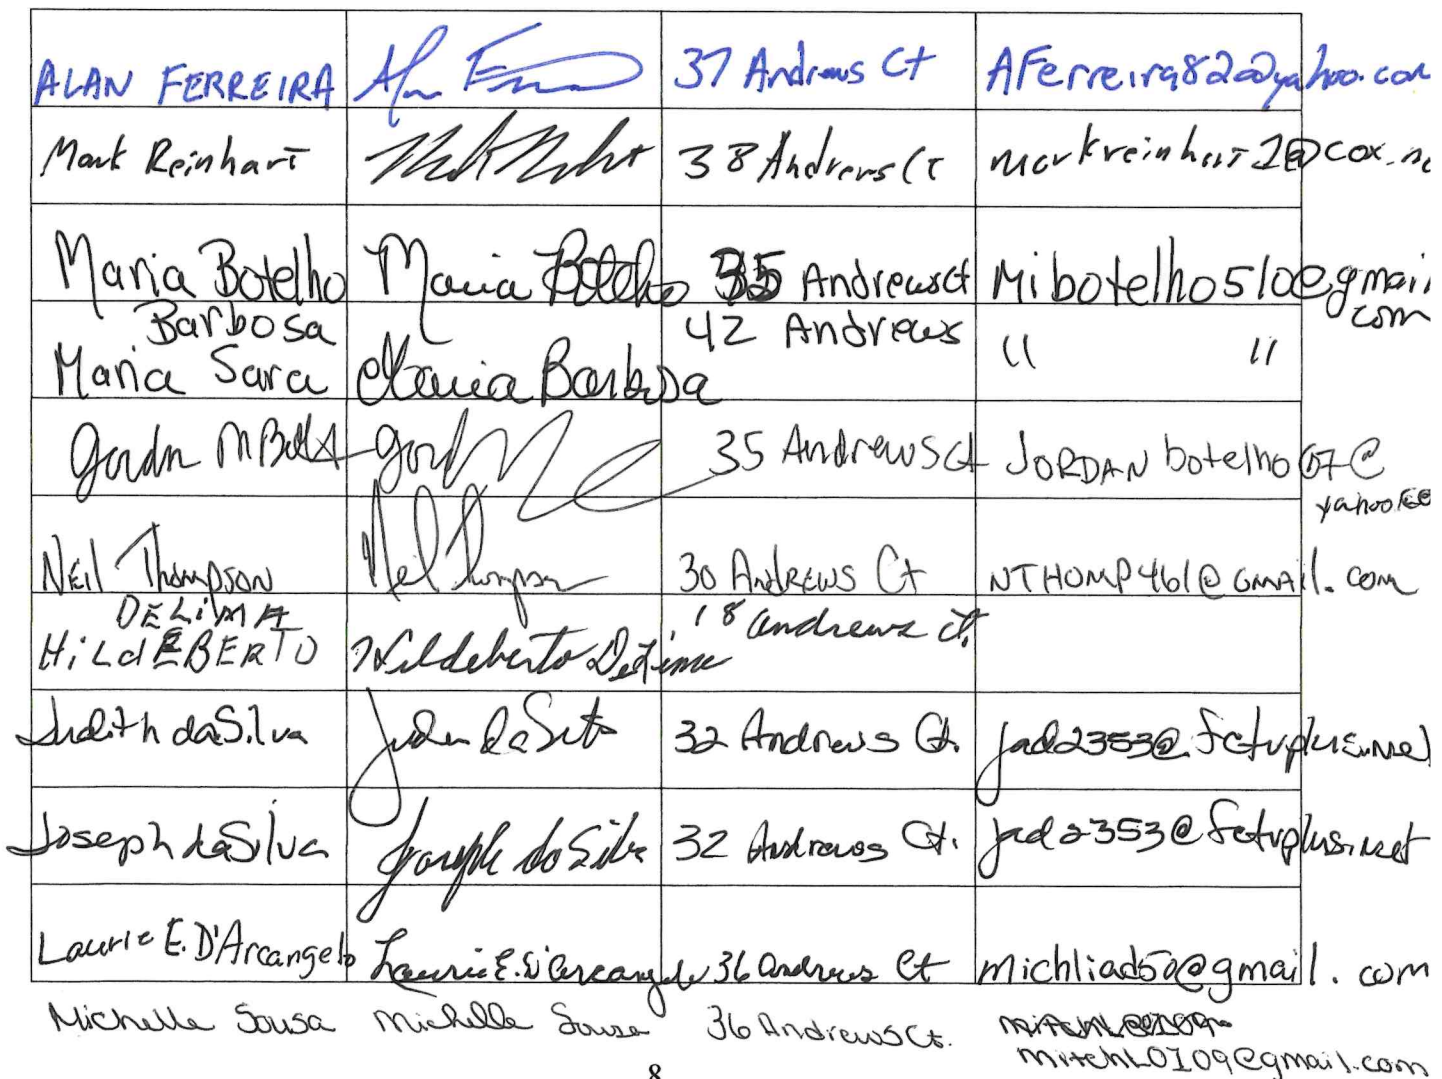 ALAN FERREIRA 37 Andrews Ct AFerreira82@yahoo.com
Mark Reinhart 38 Andrews Ct markreinhart1@cox.ne
Maria Botelho Maria Botelho 35 Andrews Ct Mibotelho510@gmail
com
Barbosa 42 Andrews " "
Maria Sara Maria Barbosa
35 Andrews Ct JORDAN botelho07@
yahoo
Neil Thompson Neil Thompson 30 Andrews Ct NTHOMP461@GMAIL.com
DELIMA 18 Andrews Ct,
HiLdEBERTO Hildeberto DeLima
Judith daSilva 32 Andrews Ct. jad2353@fctvplus.net
Joseph daSilva Joseph daSilva 32 Andrews Ct. jad2353@fctvplus.net
Laurie E. D'Arcangelo Laurie E. D'Arcangelo 36 Andrews Ct michliad50@gmail.com
Michelle Sousa Michelle Sousa 36 Andrews Ct.
mitchL0109@gmail.com
8